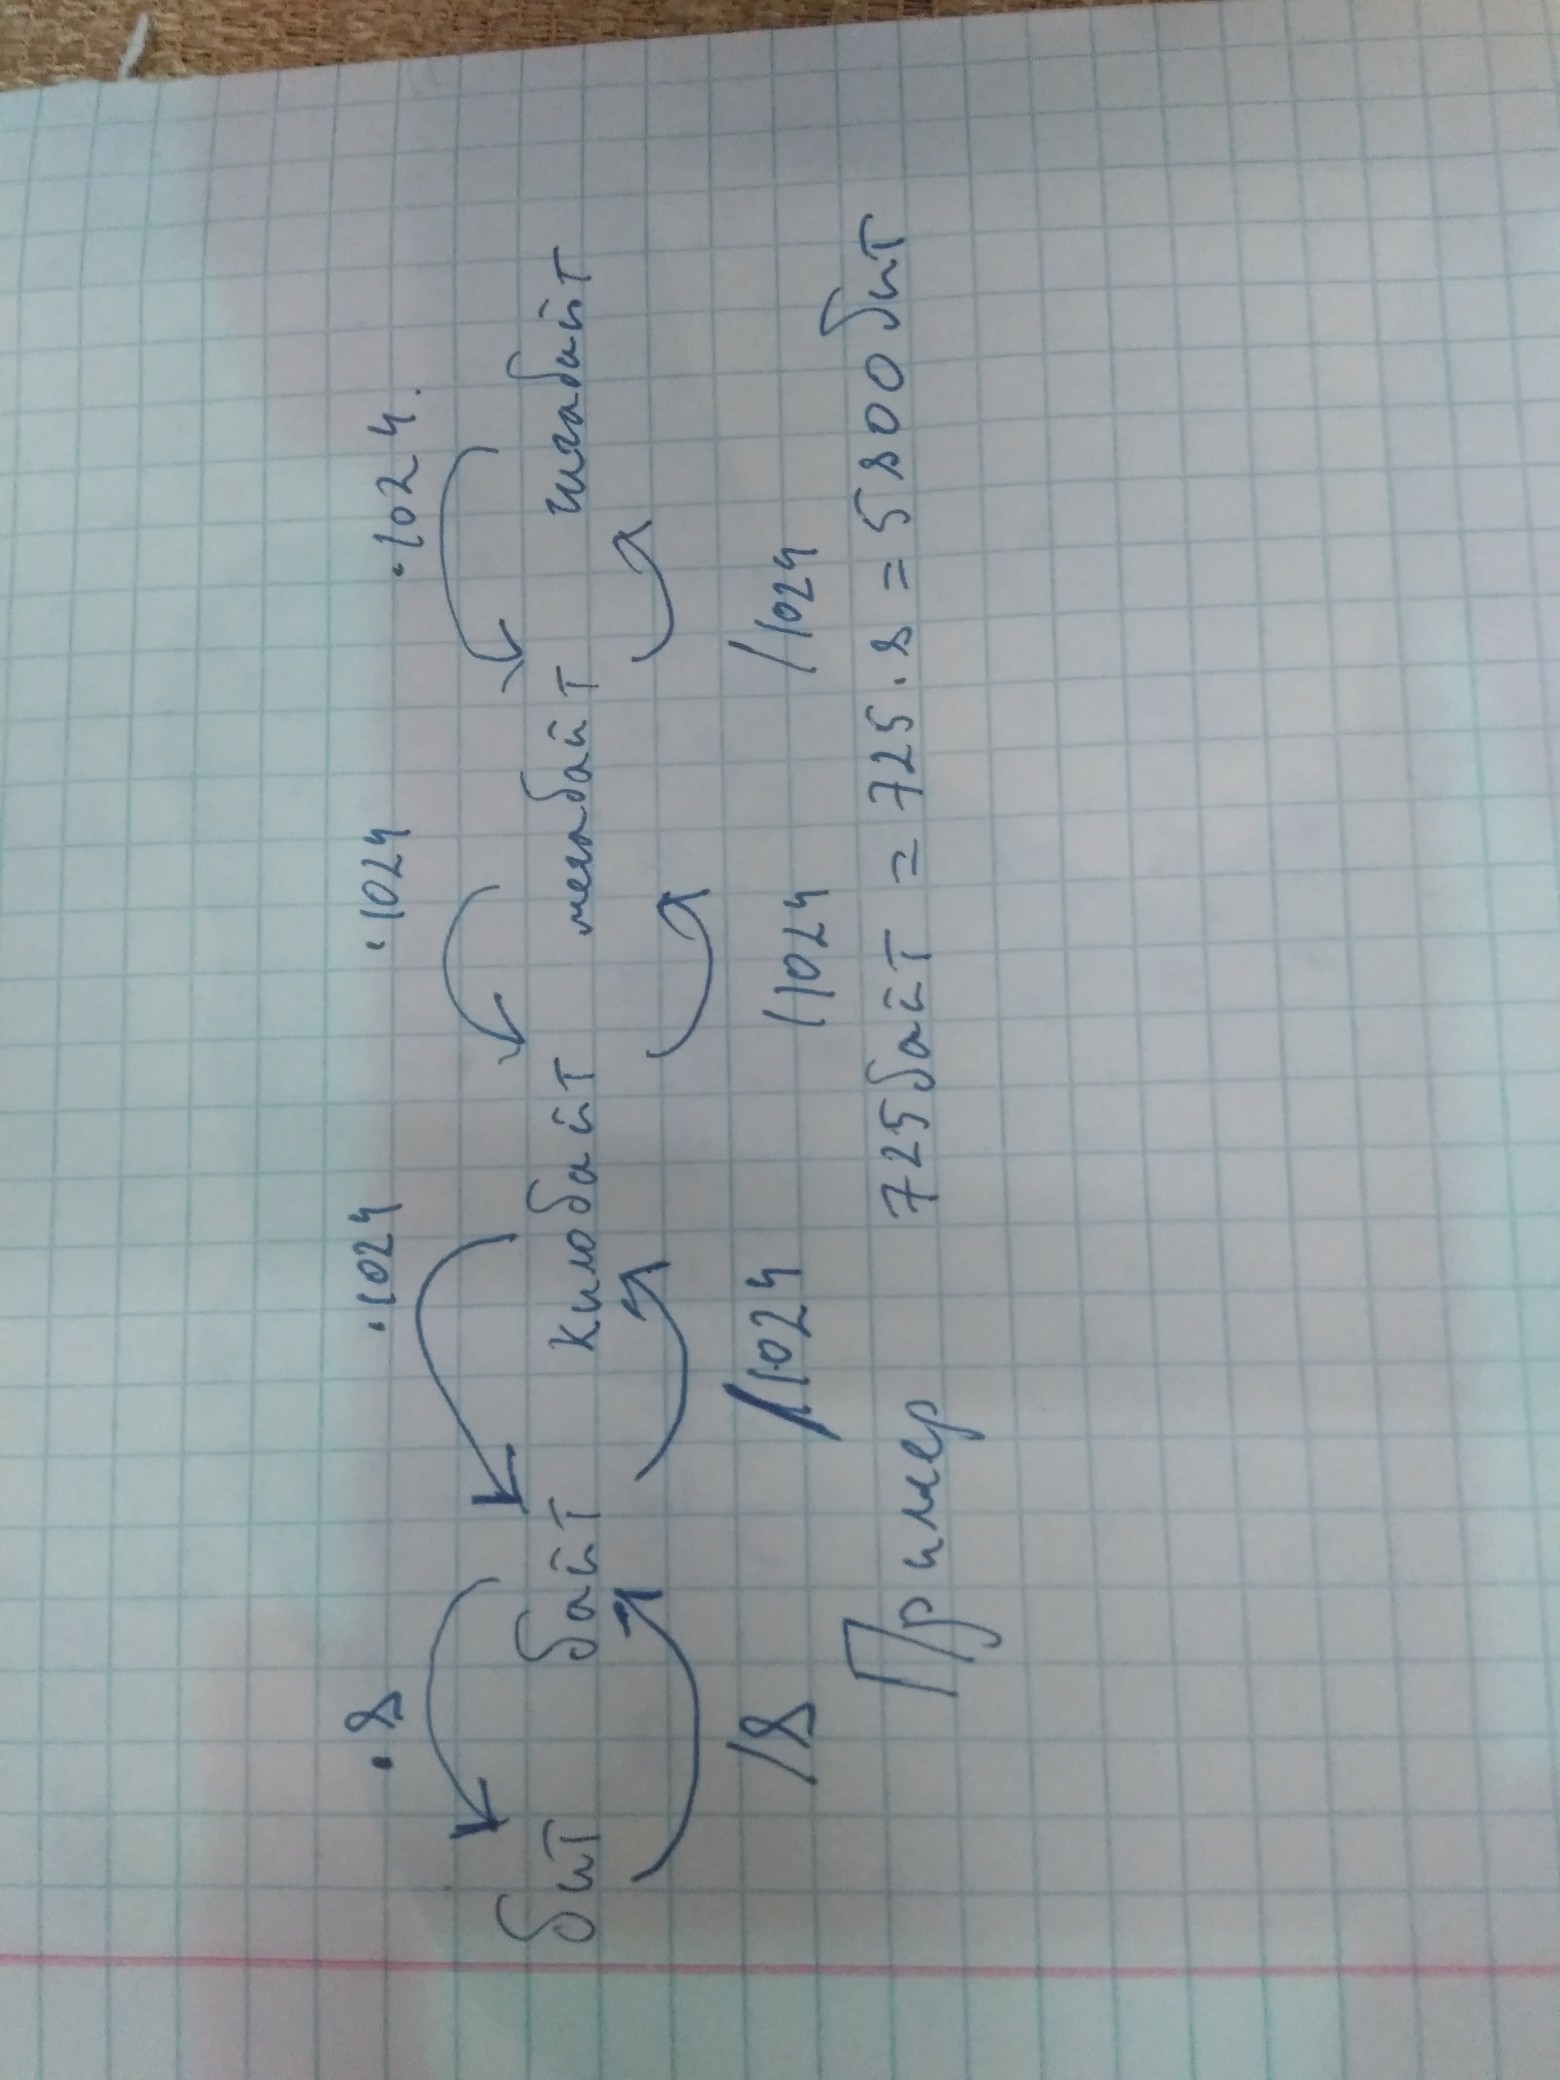 ·8 ·1024 ·1024 ·1024.
бит байт килобайт мегабайт гигабайт
/8 /1024 /1024 /1024
Пример 725байт = 725·8 = 5800 бит